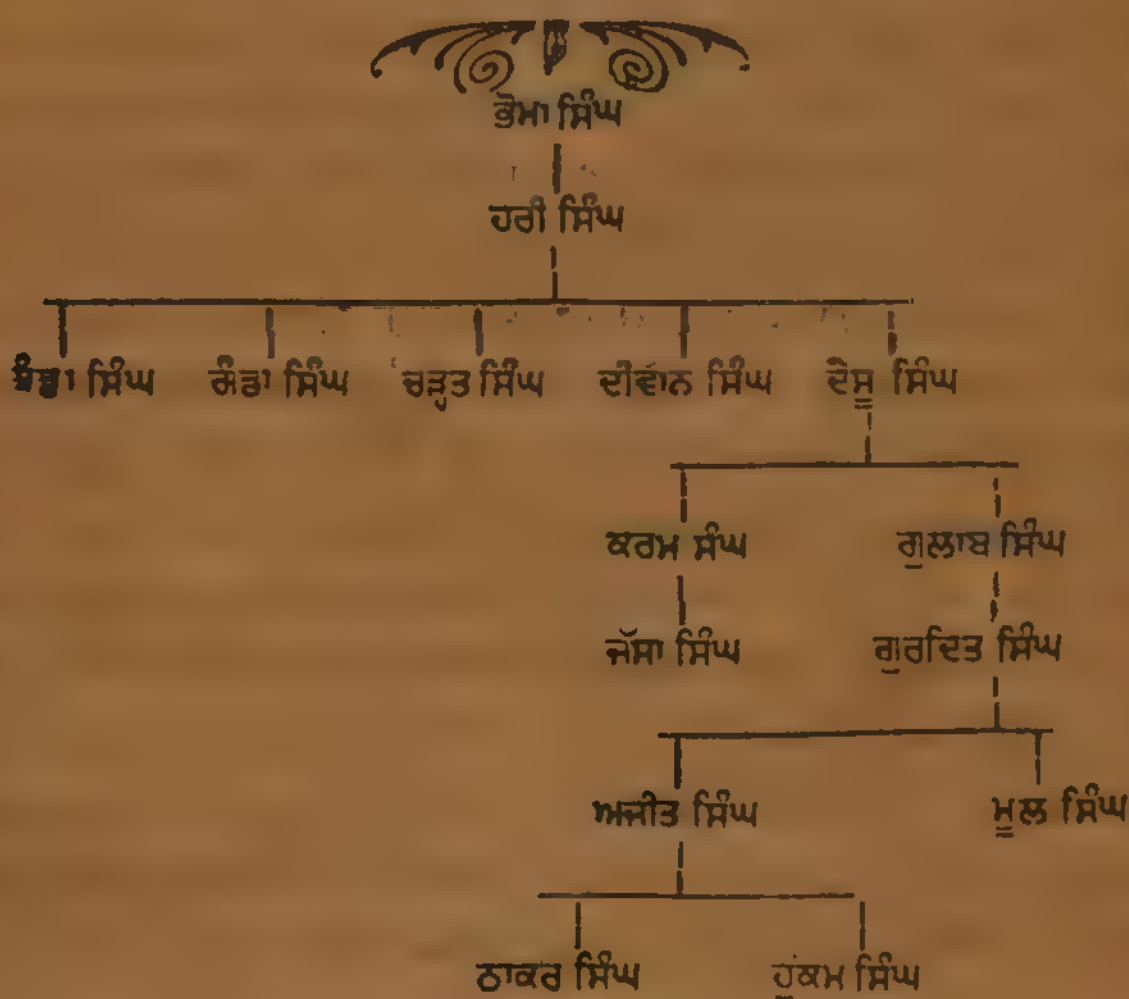 ਭੋਮਾ ਸਿੰਘ
ਹਰੀ ਸਿੰਘ
ਝੰਡਾ ਸਿੰਘ ਗੰਡਾ ਸਿੰਘ ਚੜ੍ਹਤ ਸਿੰਘ ਦੀਵਾਨ ਸਿੰਘ ਦੇਸੂ ਸਿੰਘ
ਕਰਮ ਸੰਘ ਗੁਲਾਬ ਸਿੰਘ
ਜੱਸਾ ਸਿੰਘ ਗੁਰਦਿਤ ਸਿੰਘ
ਅਜੀਤ ਸਿੰਘ ਮੂਲ ਸਿੰਘ
ਠਾਕਰ ਸਿੰਘ ਹੁਕਮ ਸਿੰਘ